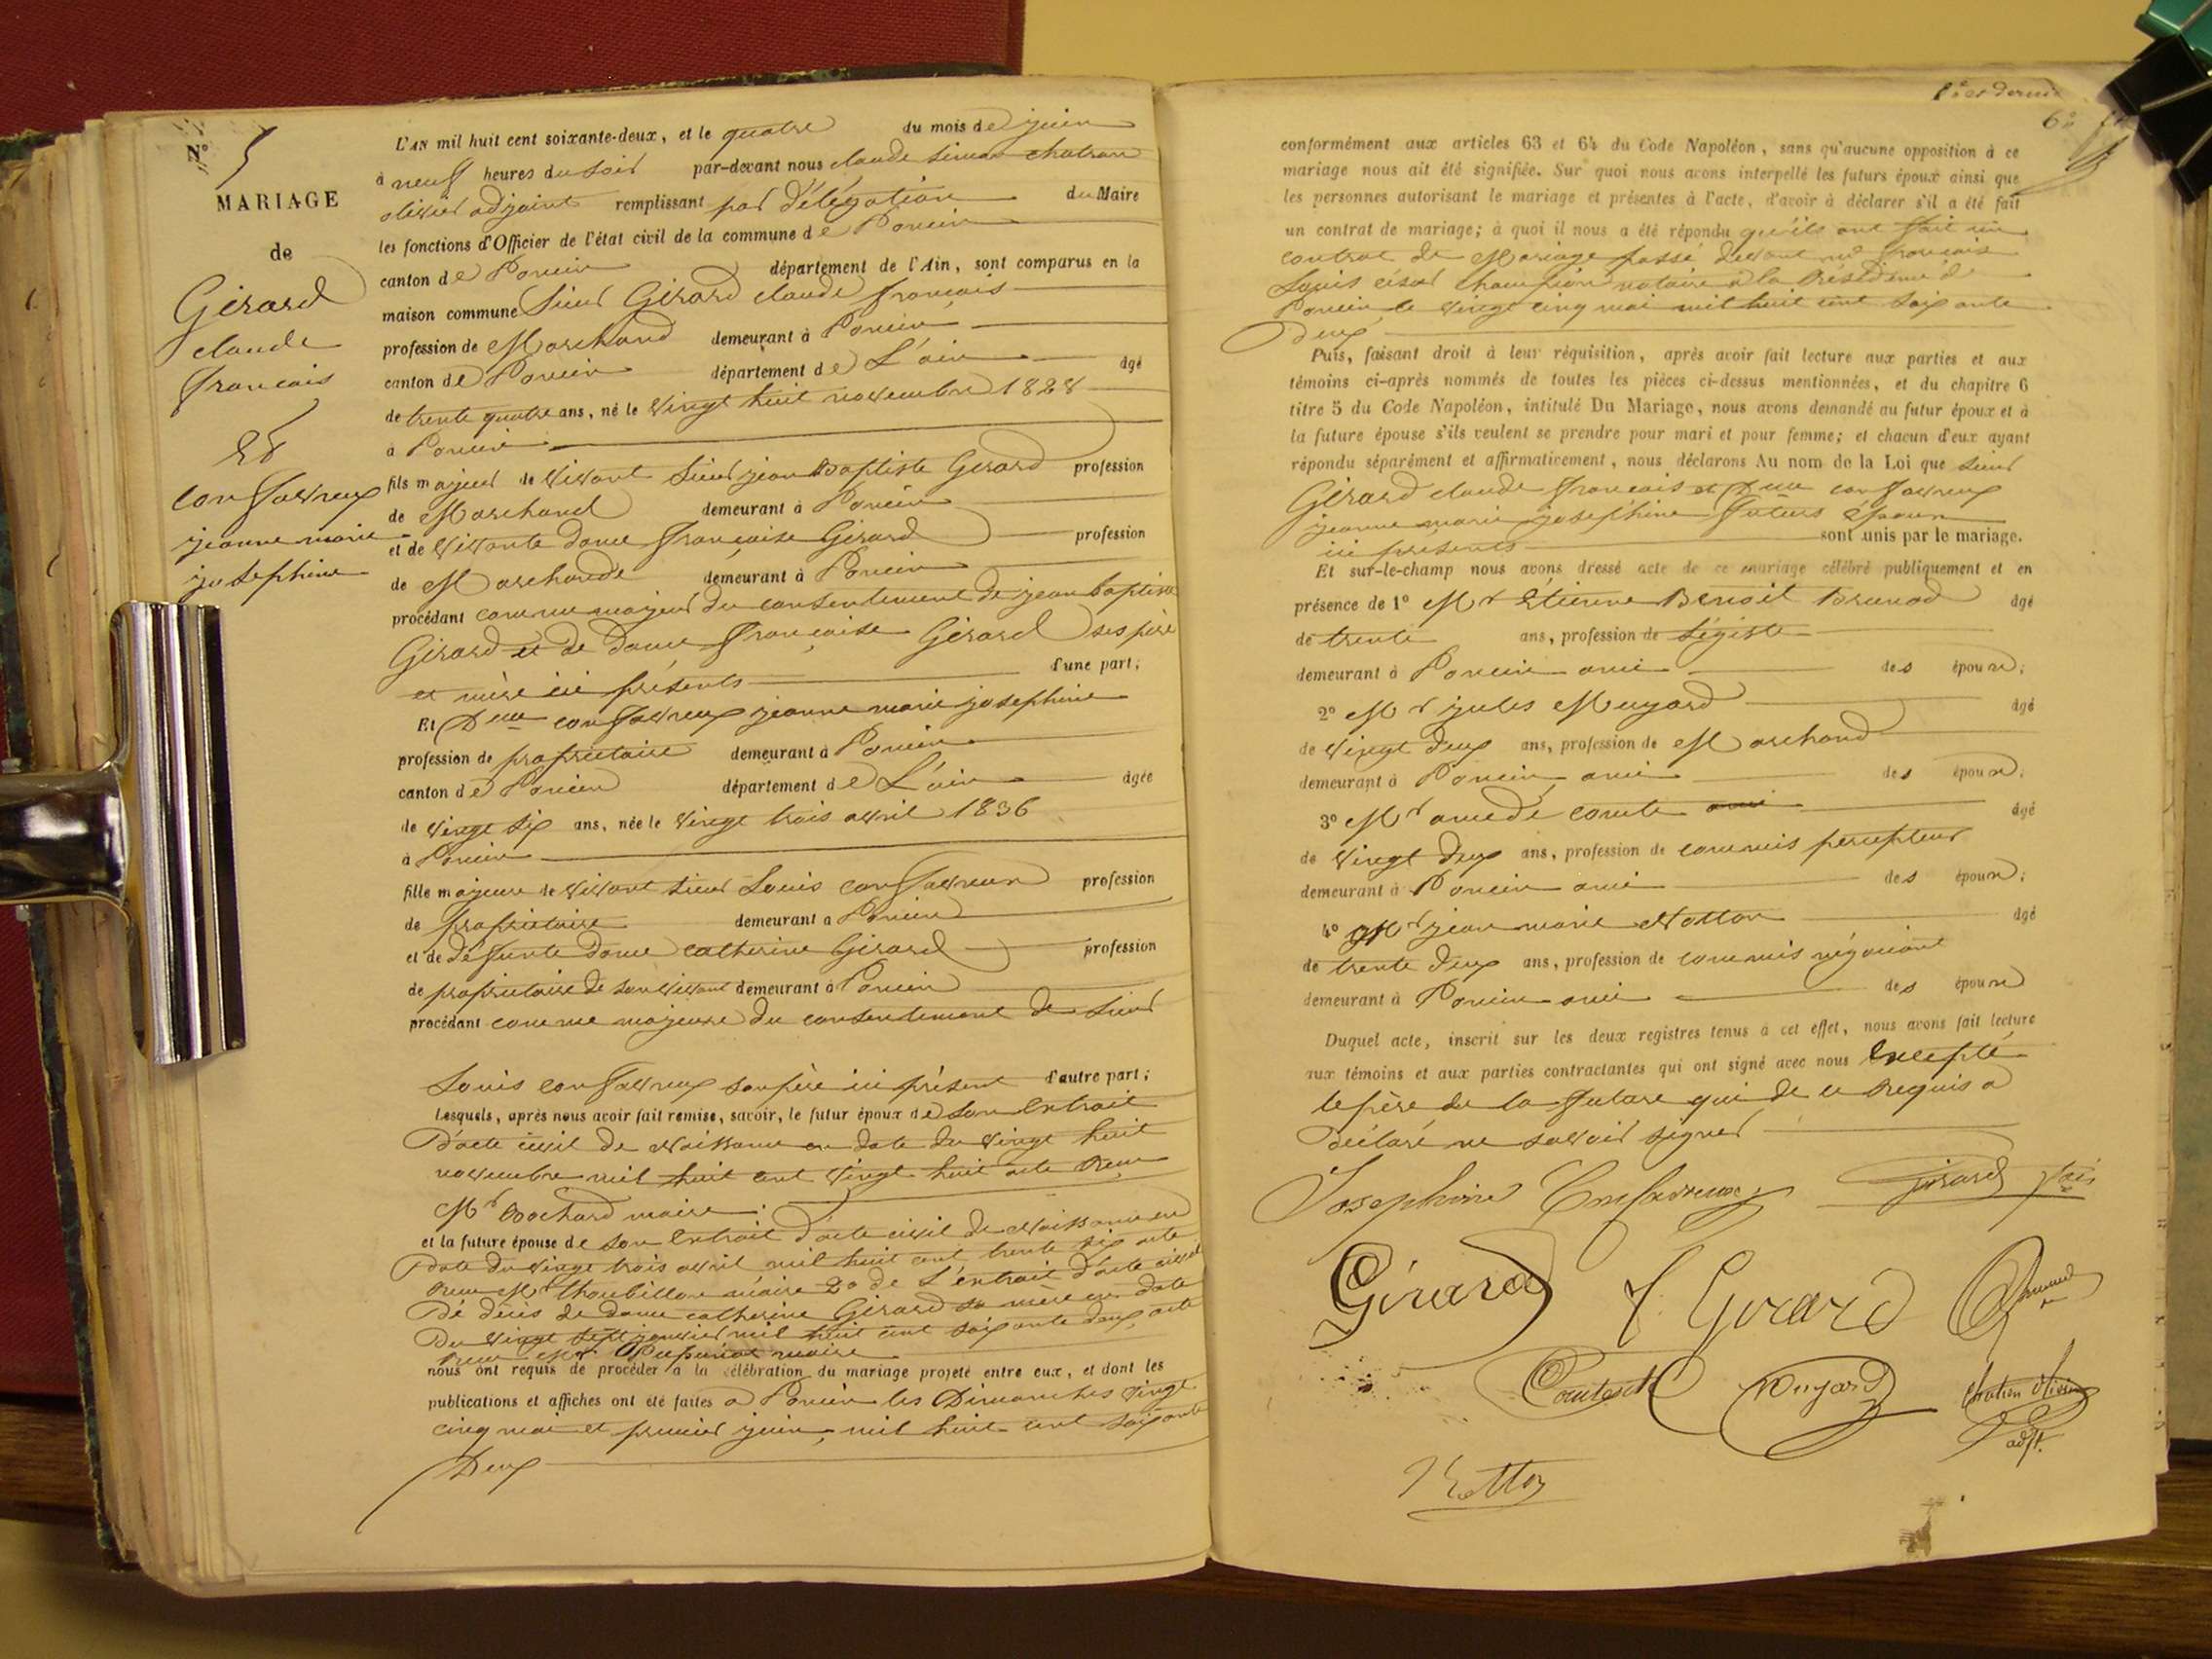 N° 5
MARIAGE
de
Girard
claude
francais
Et
confavreux
jeanne marie
josephine
L'AN mil huit cent soixante-deux, et le quatre du mois de juin
à neuf heures du soir par-devant nous claude simon chatron
olivier adjoint remplissant par délégation du Maire
les fonctions d'Officier de l'état civil de la commune de Poncin
canton de Poncin département de l'Ain, sont comparus en la
maison commune Sieur Girard claude francais
profession de Marchand demeurant à Poncin
canton de Poncin département de L'ain âgé
de trente quatre ans, né le vingt huit novembre 1828
à Poncin
fils majeur de vivant Sieur jean Baptiste Girard profession
de Marchand demeurant à Poncin
et de vivante dame française Girard profession
de Marchande demeurant à Poncin
procédant comme majeur du consentement de jean baptiste
Girard et de dame française Girard ses père
et mère ici présents d'une part;
Et Delle confavreux jeanne marie josephine
profession de propriétaire demeurant à Poncin
canton de Poncin département de L'ain âgée
de vingt six ans, née le vingt trois avril 1836
à Poncin
fille majeure de vivant sieur Louis confavreux profession
de propriétaire demeurant à Poncin
et de défunte dame catherine Girard profession
de propriétaire de son vivant demeurant à Poncin
procédant comme majeure du consentement de sieur
Louis confavreux son père ici présent d'autre part;
Lesquels, après nous avoir fait remise, savoir, le futur époux de son Extrait
D'acte civil de Naissance en date du vingt huit
novembre mil huit cent vingt huit acte Reçu
Mr Bochard maire.
et la future épouse de son Extrait d'acte civil de Naissance en
Date du vingt trois avril mil huit cent trente six acte
Reçu Mr Thoubillon maire 2° de L'extrait d'acte civil
De décès de dame catherine Girard sa mère en date
Du vingt sept janvier mil huit cent soixante deux, acte
reçu Mr maire
nous ont requis de procéder à la célébration du mariage projeté entre eux, et dont les
publications et affiches ont été faites à Poncin les Dimanches vingt
cinq mai et premier juin, mil huit cent soixante
Deux
conformément aux articles 63 et 64 du Code Napoléon, sans qu'aucune opposition à ce
mariage nous ait été signifiée. Sur quoi nous avons interpellé les futurs époux ainsi que
les personnes autorisant le mariage et présentes à l'acte, d'avoir à déclarer s'il a été fait
un contrat de mariage; à quoi il nous a été répondu qu'ils ont fait un
contrat de Mariage passé devant me francois
Louis césar Champion notaire à la Résidence de
Poncin le vingt cinq mai mil huit cent soixante
Deux
Puis, faisant droit à leur réquisition, après avoir fait lecture aux parties et aux
témoins ci-après nommés de toutes les pièces ci-dessus mentionnées, et du chapitre 6
titre 5 du Code Napoléon, intitulé Du Mariage, nous avons demandé au futur époux et à
la future épouse s'ils veulent se prendre pour mari et pour femme; et chacun d'eux ayant
répondu séparément et affirmativement, nous déclarons Au nom de la Loi que sieur
Girard claude francais et Delle confavreux
jeanne marie josephine futurs époux
ici présents sont unis par le mariage.
Et sur-le-champ nous avons dressé acte de ce mariage célébré publiquement et en
présence de 1° Mr Etienne Benoit Brunod âgé
de trente ans, profession de Légiste
demeurant à Poncin ami des époux;
2° Mr jules Muyard âgé
de vingt deux ans, profession de Marchand
demeurant à Poncin ami des époux;
3° Mr amédé comte ami âgé
de vingt deux ans, profession de commis percepteur
demeurant à Poncin ami des époux;
4° Mr jean marie Notton âgé
de trente deux ans, profession de commis négociant
demeurant à Poncin ami des époux
Duquel acte, inscrit sur les deux registres tenus à cet effet, nous avons fait lecture
aux témoins et aux parties contractantes qui ont signé avec nous Excepté
le père de la future qui de ce requis a
déclaré ne savoir signer
Josephine Confavreux Girard
Girard f. Girard Brunod
Comte Muyard Chatron Olivier
adjt.
Notton